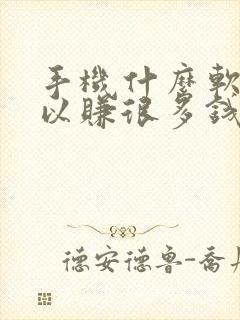 手機什麼軟
以賺很多錢
德安德鲁-喬丹